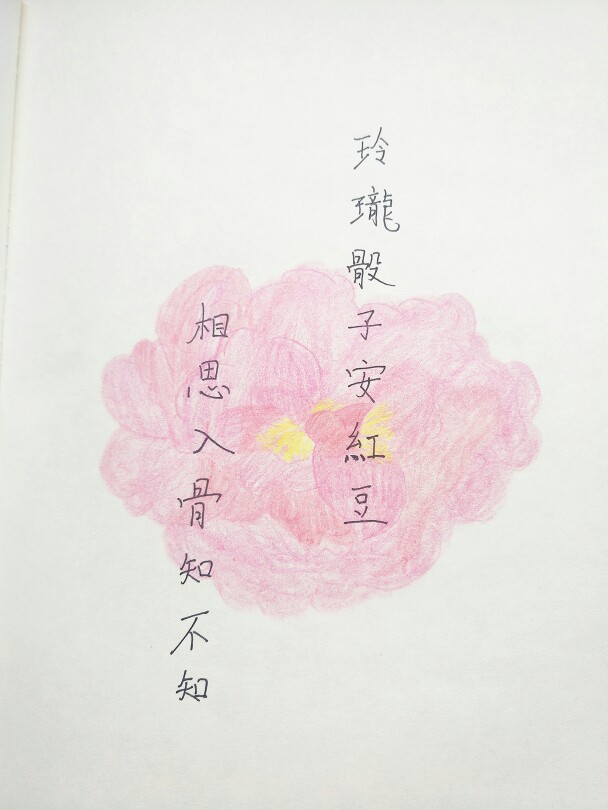 玲瓏骰子安紅豆
相思入骨知不知